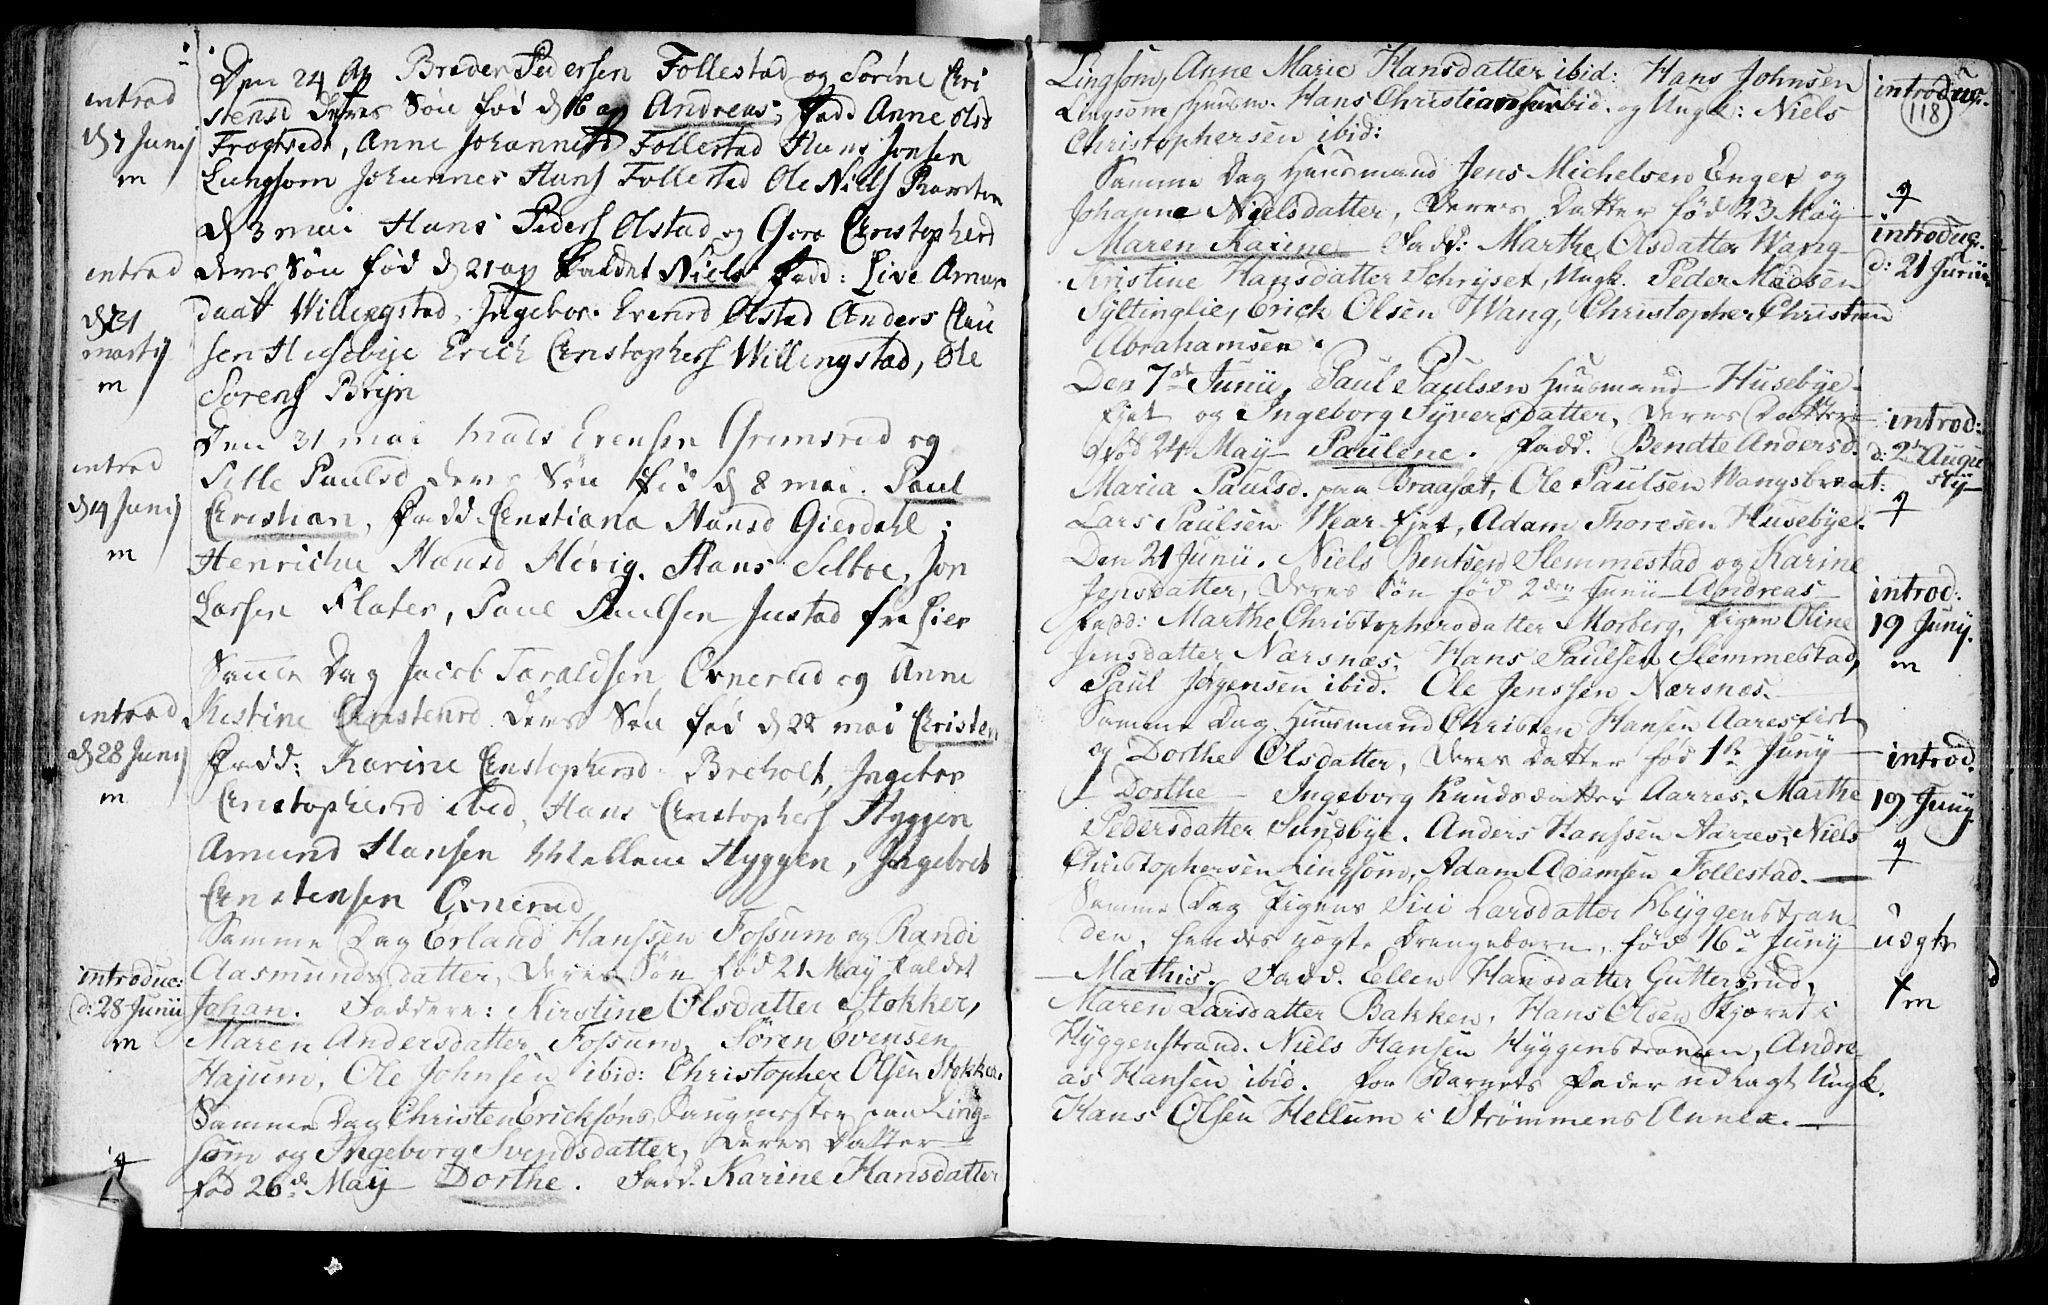 Den 24 Ap Breder Pedersen Follestad og Sorine Cri
stensd deres Søn fød d 16 ap Andreas; Fadd Anne Olsd
Frogtvedt, Anne Johanness Follestad Hans Jonsen
Lingsom Johannes Hans Follestad Ole Niels
introd
d 7 Junij
m
d 3 mai Hans Peders Ølstad og Goro Cristopherd
deres Søn fød d 21 ap kaldet Niels Fadd: Live Amun
daatt Willingstad, Ingebor Evensd Ølstad Anders Clau
sen Husebye Erich Cristophers Willingstad, Ole
Sørens Brÿn
introd
d 31
m
Den 31 mai Mads Evensen Grimsrud og
Sille Paulsd deres Søn fød d 8 mai. Paul
Cristian, Fadd Cristiana Hansd Gierdahl;
Henriche Hansd Høvig. Hans Seltoe, Jon
Larsen Flaten, Paul Paulsen Justad fra Lier
introd
d 14 Junij
m
Samme Dag Jacob Taraldsen Ovnerud og Anne
Kistine Cristensd deres Søn fød d 22 mai Cristen
Fadd: Karine Cristophersd Breholt, Ingebor
Cristophersd ibid, Hans Cristophers Hyggen
Amund Hansen Mellem Hyggen, Ingebret
Cristensen Ovnerud
introd
d 28 Junij
m
Samme Dag Erland Hanssen Fossum og Randi
Aasmundsdatter, deres Søn fød 21 May kaldet
Johan. Faddere: Kirstine Olsdatter Stokker,
Maren Andersdatter Fossum, Søren Evensen
Hajum, Ole Johnsen ibid: Christopher Olsen Stokker.
introduc:
d: 28 Junii
m
Samme Dag Christen Ericksøns Saugmester paa Ling-
som og Ingeborg Svendsdatter, deres Datter
fød 26de May Dorthe. Fadd. Karine Hansdatter
Lingsom, Anne Marie Hansdatter ibid: Hans Johnsen
Lingsom, Huusm. Hans Christiansen ibid. og Ungk: Niels
Christophersen ibid:
introduc.
118
Samme Dag Huusmand Jens Michelsen Enger og
Johanne Nielsdatter, deres Datter fød 23 May
Maren Karine Fadd: Marthe Olsdatter Wang
Kristine Hansdatter Schryset, Ungk. Peder Madsen
Syltinglie, Erick Olsen Wang, Christopher Christian
Abrahamsen.
introduc.
d: 21 Junii
Den 7de Junii, Paul Paulsen Huusmand Husebye-
Ejet og Ingeborg Syversdatter, deres Datter
fød 24 May Pauline. Fadd. Bendte Andersd.
Maria Paulsd. paa Braaset, Ole Paulsen Wangsbraat:
Lars Paulsen Wear-Ejet, Adam Thoresen Husebye.
introd:
d: 2de Augu
stj
Den 21 Junii. Niels Bentsen Slemmestad og Karine
Jensdatter, deres Søn fød 2den Junii Andreas
Fadd: Marthe Christophersdatter Morberg, Pigen Oline
Jensdatter Nærsnæs, Hans Paulsen Slemmestad,
Paul Jørgensen ibid. Ole Jenssen Nærsnæs.
introd:
19 Junÿ.
m
Samme Dag Huusmand Christen Hansen Aareseiet
og Dorthe Olsdatter, deres Datter fød 1ste Juny
Dorthe Ingeborg Knudsdatter Aarres, Marthe
Pedersdatter Sundbye. Anders Hanssen Aarres, Niels
Christophersen Lingsom, Adam Adamsen Follestad.
introd.
19 Junÿ
Samme Dag Pigens Siri Larsdatter Hÿggenstran
den, hendes uægte Drengebarn, fød 16de Juny
Mathis. Fadd. Ellen Hansdatter Guttersrud,
Maren Larsdatter Bakken, Hans Olsen Kjæret i
Hÿggenstrand. Niels Hansen Hÿggenstranden, Andre-
as Hansen ibid. For Barnets Fader udlagt Ungk.
Hans Olsen Hellum i Strømmens Annex.
uægte
m